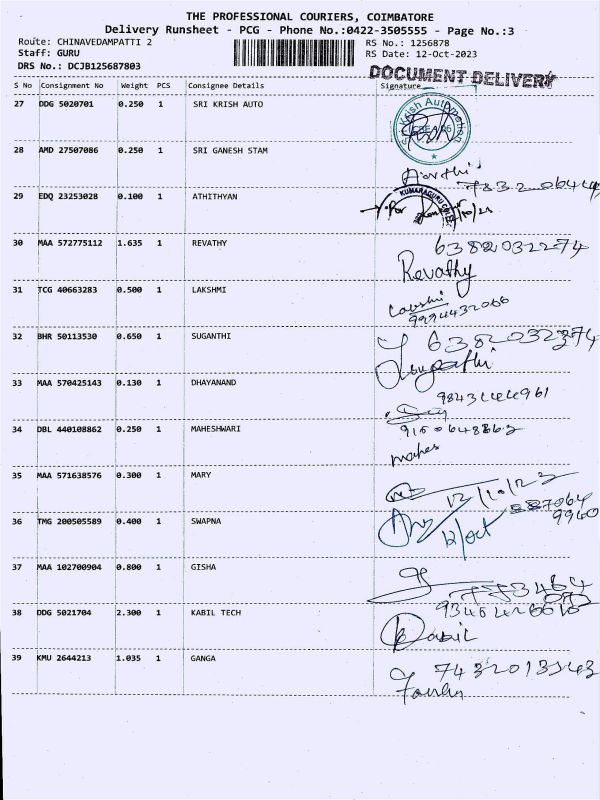 THE PROFESSIONAL COURIERS, COIMBATORE
Delivery Runsheet - PCG - Phone No.:0422-3505555 - Page No.:3
Route: CHINAVEDAMPATTI 2
RS No.: 1256878
Staff: GURU
RS Date: 12-Oct-2023
DRS No.: DCJB125687803
DOCUMENT DELIVERY
S No Consignment No Weight PCS Consignee Details Signature
27 DDG 5020701 0.250 1 SRI KRISH AUTO
Krish Automation
28 AMD 27507086 0.250 1 SRI GANESH STAM
29 EDQ 23253028 0.100 1 ATHITHYAN
KUMARAGURU
30 MAA 572775112 1.635 1 REVATHY
6382032274
Revathy
31 TCG 40663283 0.500 1 LAKSHMI
9994432066
32 BHR 50113530 0.650 1 SUGANTHI
6382032274
33 MAA 570425143 0.130 1 DHAYANAND
34 DBL 440108862 0.250 1 MAHESHWARI
mahes
35 MAA 571638576 0.300 1 MARY
12/10/23
36 TMG 200505589 0.400 1 SWAPNA
12/oct
9940
37 MAA 102700904 0.800 1 GISHA
38 DDG 5021704 2.300 1 KABIL TECH
Kabil
39 KMU 2644213 1.035 1 GANGA